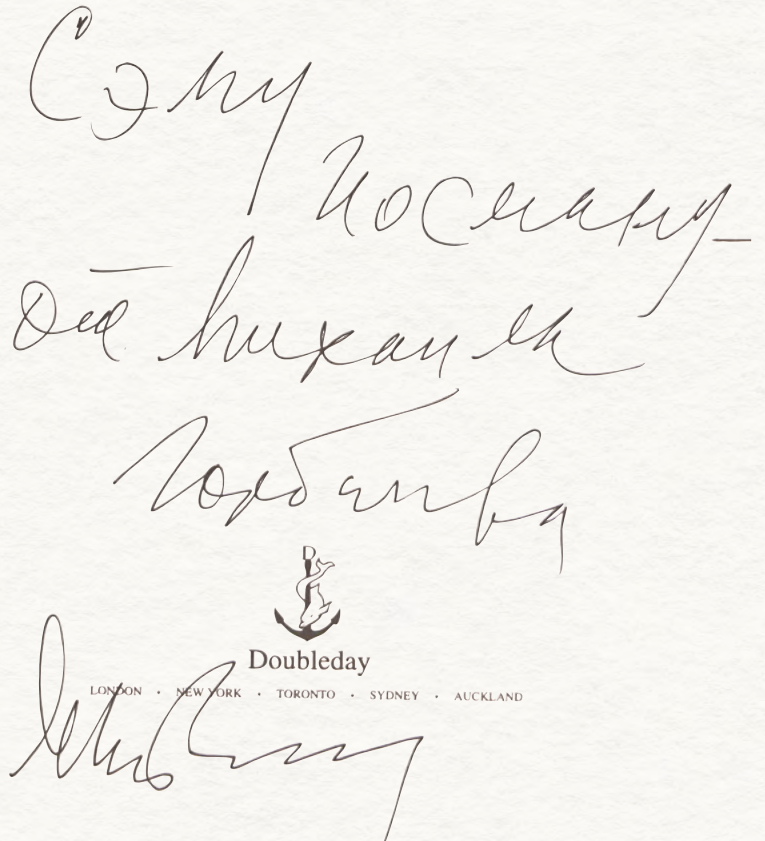 Сэму
от Михаила
Горбачева
D
Doubleday
LONDON · NEW YORK · TORONTO · SYDNEY · AUCKLAND